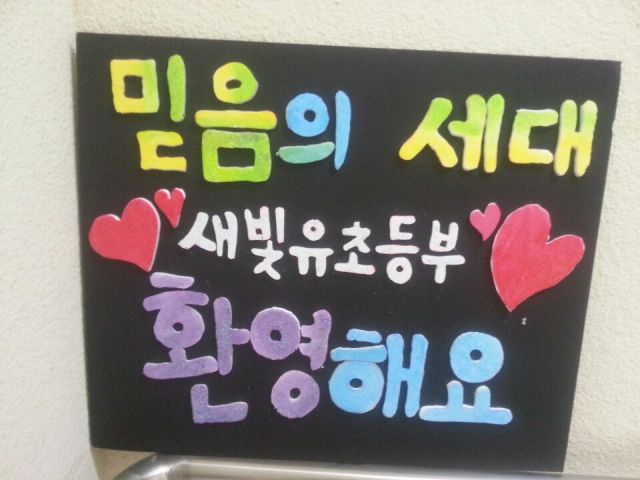 믿음의 세대
새빛유초등부
환영해요